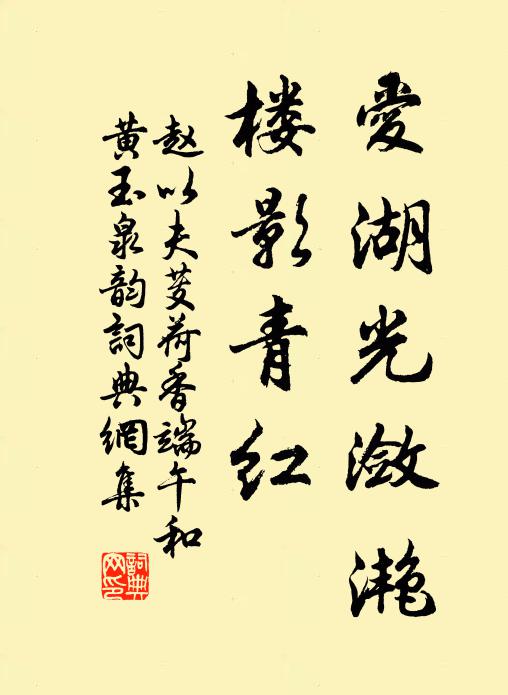 愛湖光潋滟
楼影青红
赵以夫芰荷香端午和
黄玉泉韵詞典網集
詞典网印